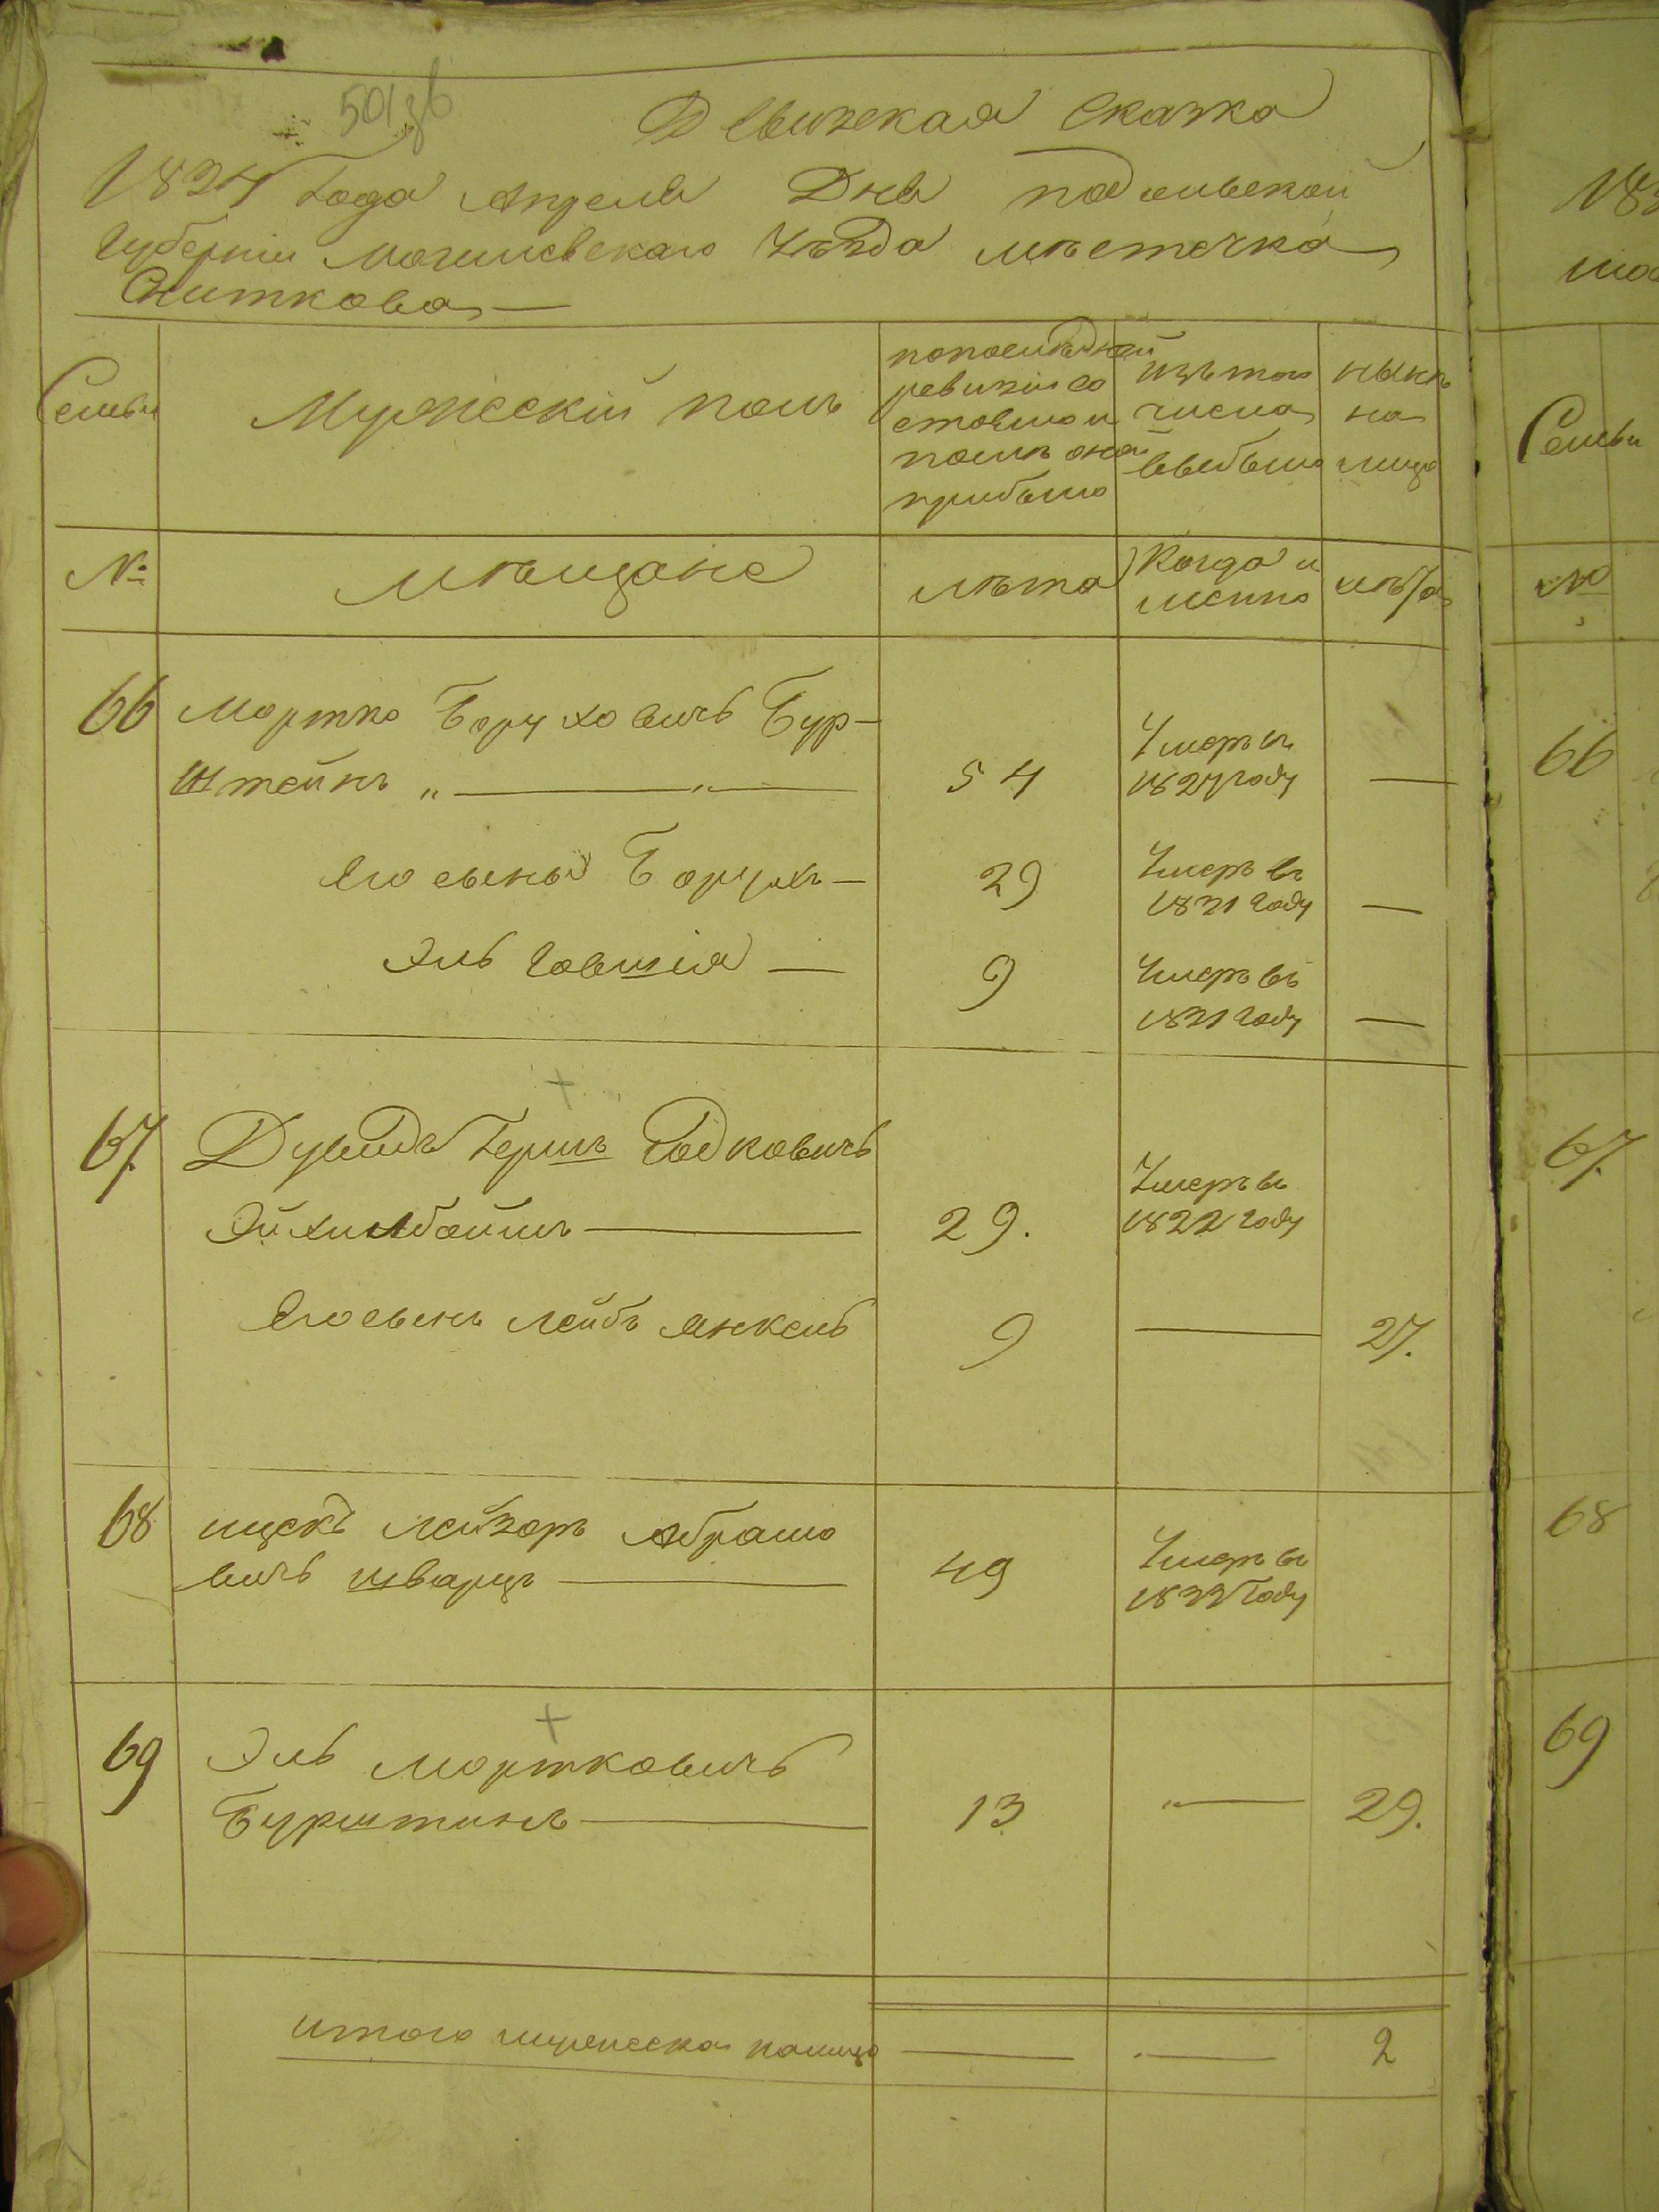 501 зв
Ревизская Сказка
1834 Года Апреля Дня подольской
Губернии могилевскаго Уѣзда мѣстечка
Сниткова —
Семьи
Мужескій полъ
попослѣдней
ревизіи со
стояло и
послѣ оной
прибыло
изъ того
числа
выбыло
нынѣ
на
лицо
№
мѣщане
лѣта
Когда и
менно
лѣта
66 Мортко Боруховичь Бур-
штейнъ „ — „ —
54
Умеръ въ
1827 году
—
Его сыны Борухъ —
29
Умеръ въ
1831 Году
—
Эль Говшія —
9
Умеръ въ
1831 Году
—
67. Дувидъ Гершъ Юдковичь
Эйхилбоймъ —
29.
Умеръ въ
1822 Году
Его сынъ Лейбъ Янкель
9
—
27.
68 ицекъ Лейзоръ Абрамо
вичь шварцъ —
49
Умеръ въ
1833 Году
69 Эль Мортковичь
Бурштинъ —
13
„ —
29.
итого мужеска полу
—
—
2
183
Семьи
№
66
67.
68
69